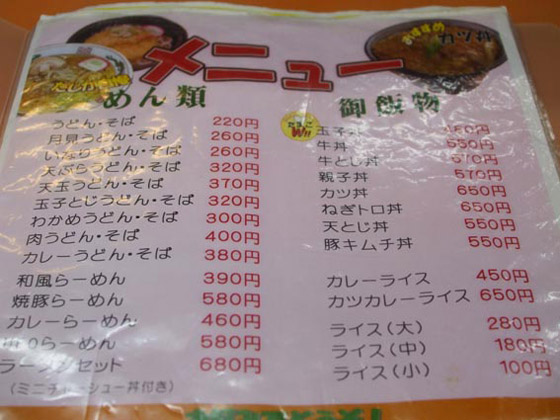 メニュー
おすすめ
カツ丼
めん類
うどん・そば 220円
月見うどん・そば 260円
いなりうどん・そば 260円
天ぷらうどん・そば 320円
天玉うどん・そば 370円
玉子とじうどん・そば 320円
わかめうどん・そば 300円
肉うどん・そば 400円
カレーうどん・そば 380円
和風らーめん 390円
焼豚らーめん 580円
カレーらーめん 460円
らーめん 580円
ラーメンセット 680円
(ミニチャーシュー丼付き)
御飯物
玉子丼 480円
牛丼 550円
牛とじ丼 570円
親子丼 570円
カツ丼 650円
ねぎトロ丼 650円
天とじ丼 550円
豚キムチ丼 550円
カレーライス 450円
カツカレーライス 650円
ライス(大) 280円
ライス(中) 180円
ライス(小) 100円